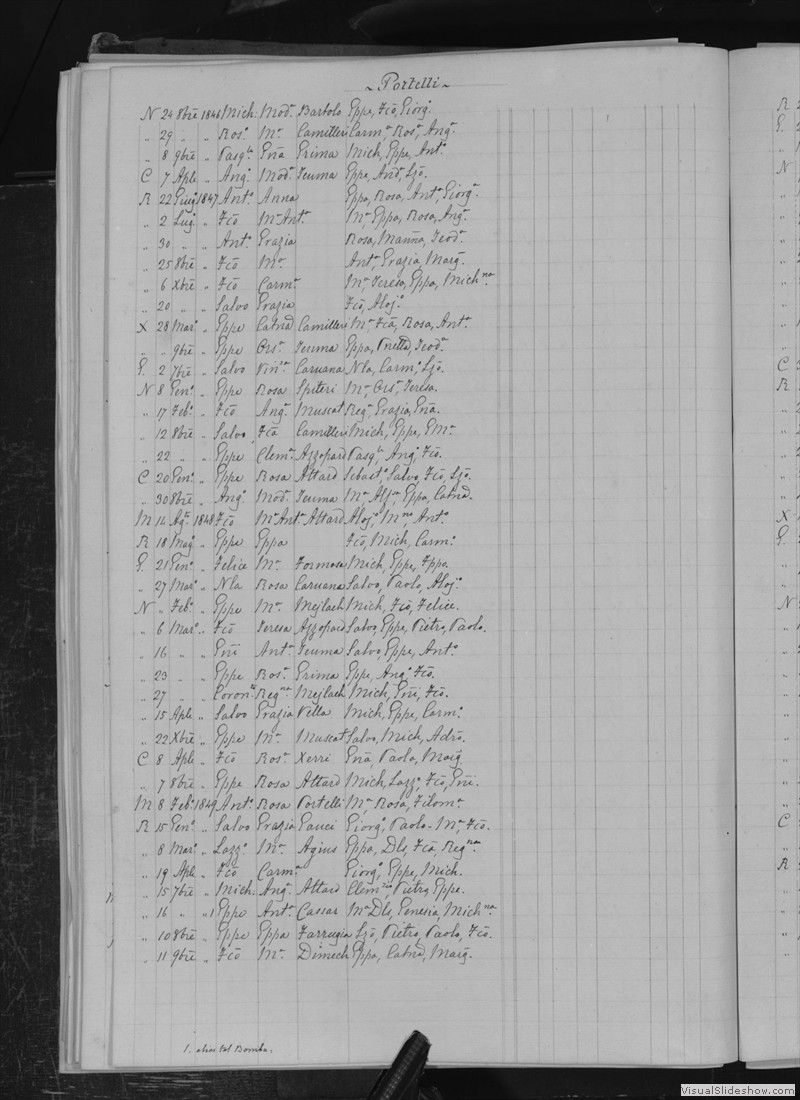 ~ Portelli ~
N 24 8bre 1846 Mich. Modª Bartolo Eppe, Fcõ, Giorgº
„ 29 „ „ Rosº Mª Camilleri Carmª, Rosª, Angª
„ 8 9bre „ Pasqle Gña Grima Mich, Eppe, Antº
C 7 Aple „ Angº Modª Teuma Eppe, Andª, Ljõ.
R 22 Giugº 1847 Antº Anna Eppa, Rosa, Antª, Giorgª
„ 2 Lugº „ Fcõ Mª Antª Mª, Eppa, Rosa, Angª
„ 30 „ „ Antº Grazia Rosa, Marina, Teodª
„ 25 8bre „ Fcõ Mª Antª, Grazia, Margª
„ 6 Xbre „ Fcõ Carmª Mª, Teresa, Eppa, Michna
„ 20 „ „ Salvo Grazia Fcõ, Alojº
X 28 Marº „ Eppe Catnã Camilleri Mª, Fcã, Rosa, Antª
„ „ 9bre „ Eppe Orsª Teuma Eppa, Vnetta, Teodª
G. 2 7bre „ Salvo Vinza Caruana Nla, Carmº, Ljõ.
N 8 Genº „ Eppe Rosa Spiteri Mª, Orsª, Teresa.
„ 17 Febº „ Fcõ Angª Muscat Regª, Grazia, Gña.
„ 12 8bre „ Salvo Fcã Camilleri Mich, Eppe, GMª
„ 22 „ „ Eppe Clemª Azzopard Pasqle, Angº, Fcõ.
C 20 Genº „ Eppe Rosa Attard Sebastº, Salvo, Fcõ, Ljõ.
„ 30 8bre „ Angº Modª Teuma Mª Aljª, Eppa, Catnã.
M 14 Agtº 1848 Fcõ Mª Antª Attard Alojº, Mno, Antº
R 18 Magº „ Eppe Eppa Fcõ, Mich, Carmº
G. 21 Genº „ Felice Mª Formosa Mich, Eppe, Fppo.
„ 27 Marº „ Nla Rosa Caruana Salvo, Paolo, Alojº
N „ Febº „ Eppe Mª Mejlach Mich, Fcõ, Felice.
„ 6 Marº „ Fcõ Teresa Azzopard Salvo, Eppe, Pietro, Paolo.
„ 16 „ „ Gñi Antª Teuma Salvo, Eppe, Antº
„ 23 „ „ Eppe Rosª Grima Eppe, Angº, Fcõ.
„ 27 „ „ Regna Mejlach Mich, Gñi, Fcõ.
„ 15 Aple „ Salvo Grazia Vella Mich, Eppe, Carmº
„ 22 Xbre „ Eppe Mª Muscat Salvo, Mich, Adrõ.
C 8 Aple „ Fcõ Rosª Xerri Gña, Paola, Margª
„ 7 8bre „ Eppe Rosa Attard Mich, Lazzº, Fcõ, Gñi.
M 8 Febº 1849 Antº Rosa Portelli Mª, Rosa, Filomª
R 15 Genº „ Salvo Grazia Gauci Giorgº, Paolo - Mª, Fcõ.
„ 8 Marº „ Lazzº Mª Agius Eppa, Dls, Fcã, Regna
„ 19 Aple „ Fcõ Carmª Giorgº, Eppe, Mich.
„ 15 7bre „ Mich. Angª Attard Clemte, Pietro, Eppe.
„ 16 „ „ 1 Eppe Antª Cassar Mª Dls, Genesia, Michna
„ 10 8bre „ Eppe Eppa Farrugia Ljõ, Pietro, Paolo, Fcõ.
„ 11 9bre „ Fcõ Mª Dimech Eppa, Catnã, Margª
1. alias tal Bomba.
VisualSlideshow.com